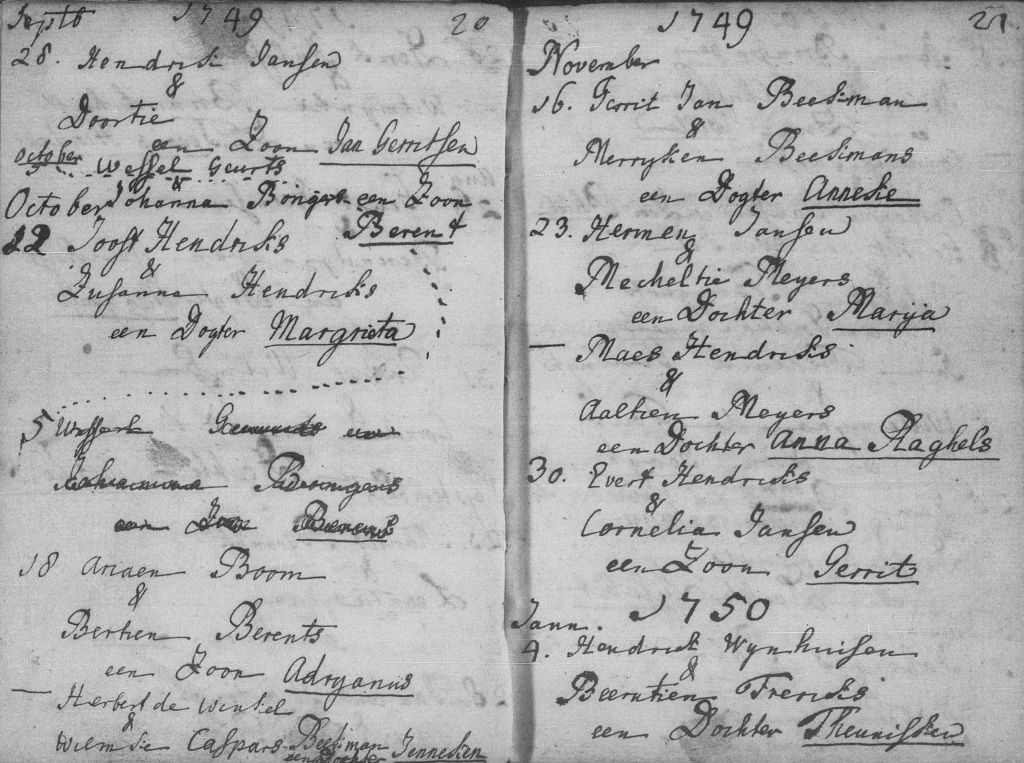 Septb 1749 20
28. Hendrik Jansen
&
Doortie
een Zoon Jan Gerritsen
october
5 Wessel Geurts
&
October Johanna Bongers een Zoon
Berent
12 Joost Hendriks
&
Zusanna Hendriks
een Dogter Margrieta
5 Wessel
&
een Zoon Berent
18 Ariaen Boom
&
Berthien Berents
een Zoon Adryanus
— Herbert de Winkel
&
Wiemke Caspars Beekman
een Dochter Jenneken
1749 21.
November
16. Gerrit Jan Beekman
&
Merryken Beekmans
een Dogter Anneke
23. Hermen Jansen
&
Mecheltie Meyers
een Dochter Marija
— Maes Hendriks
&
Aaltien Meyers
een Dochter Anna Raghels
30. Evert Hendriks
&
Cornelia Jansen
een Zoon Gerrit
1750
Jann.
4. Hendrik Wynhuisen
&
Beerntien Freriks
een Dochter Theunisken